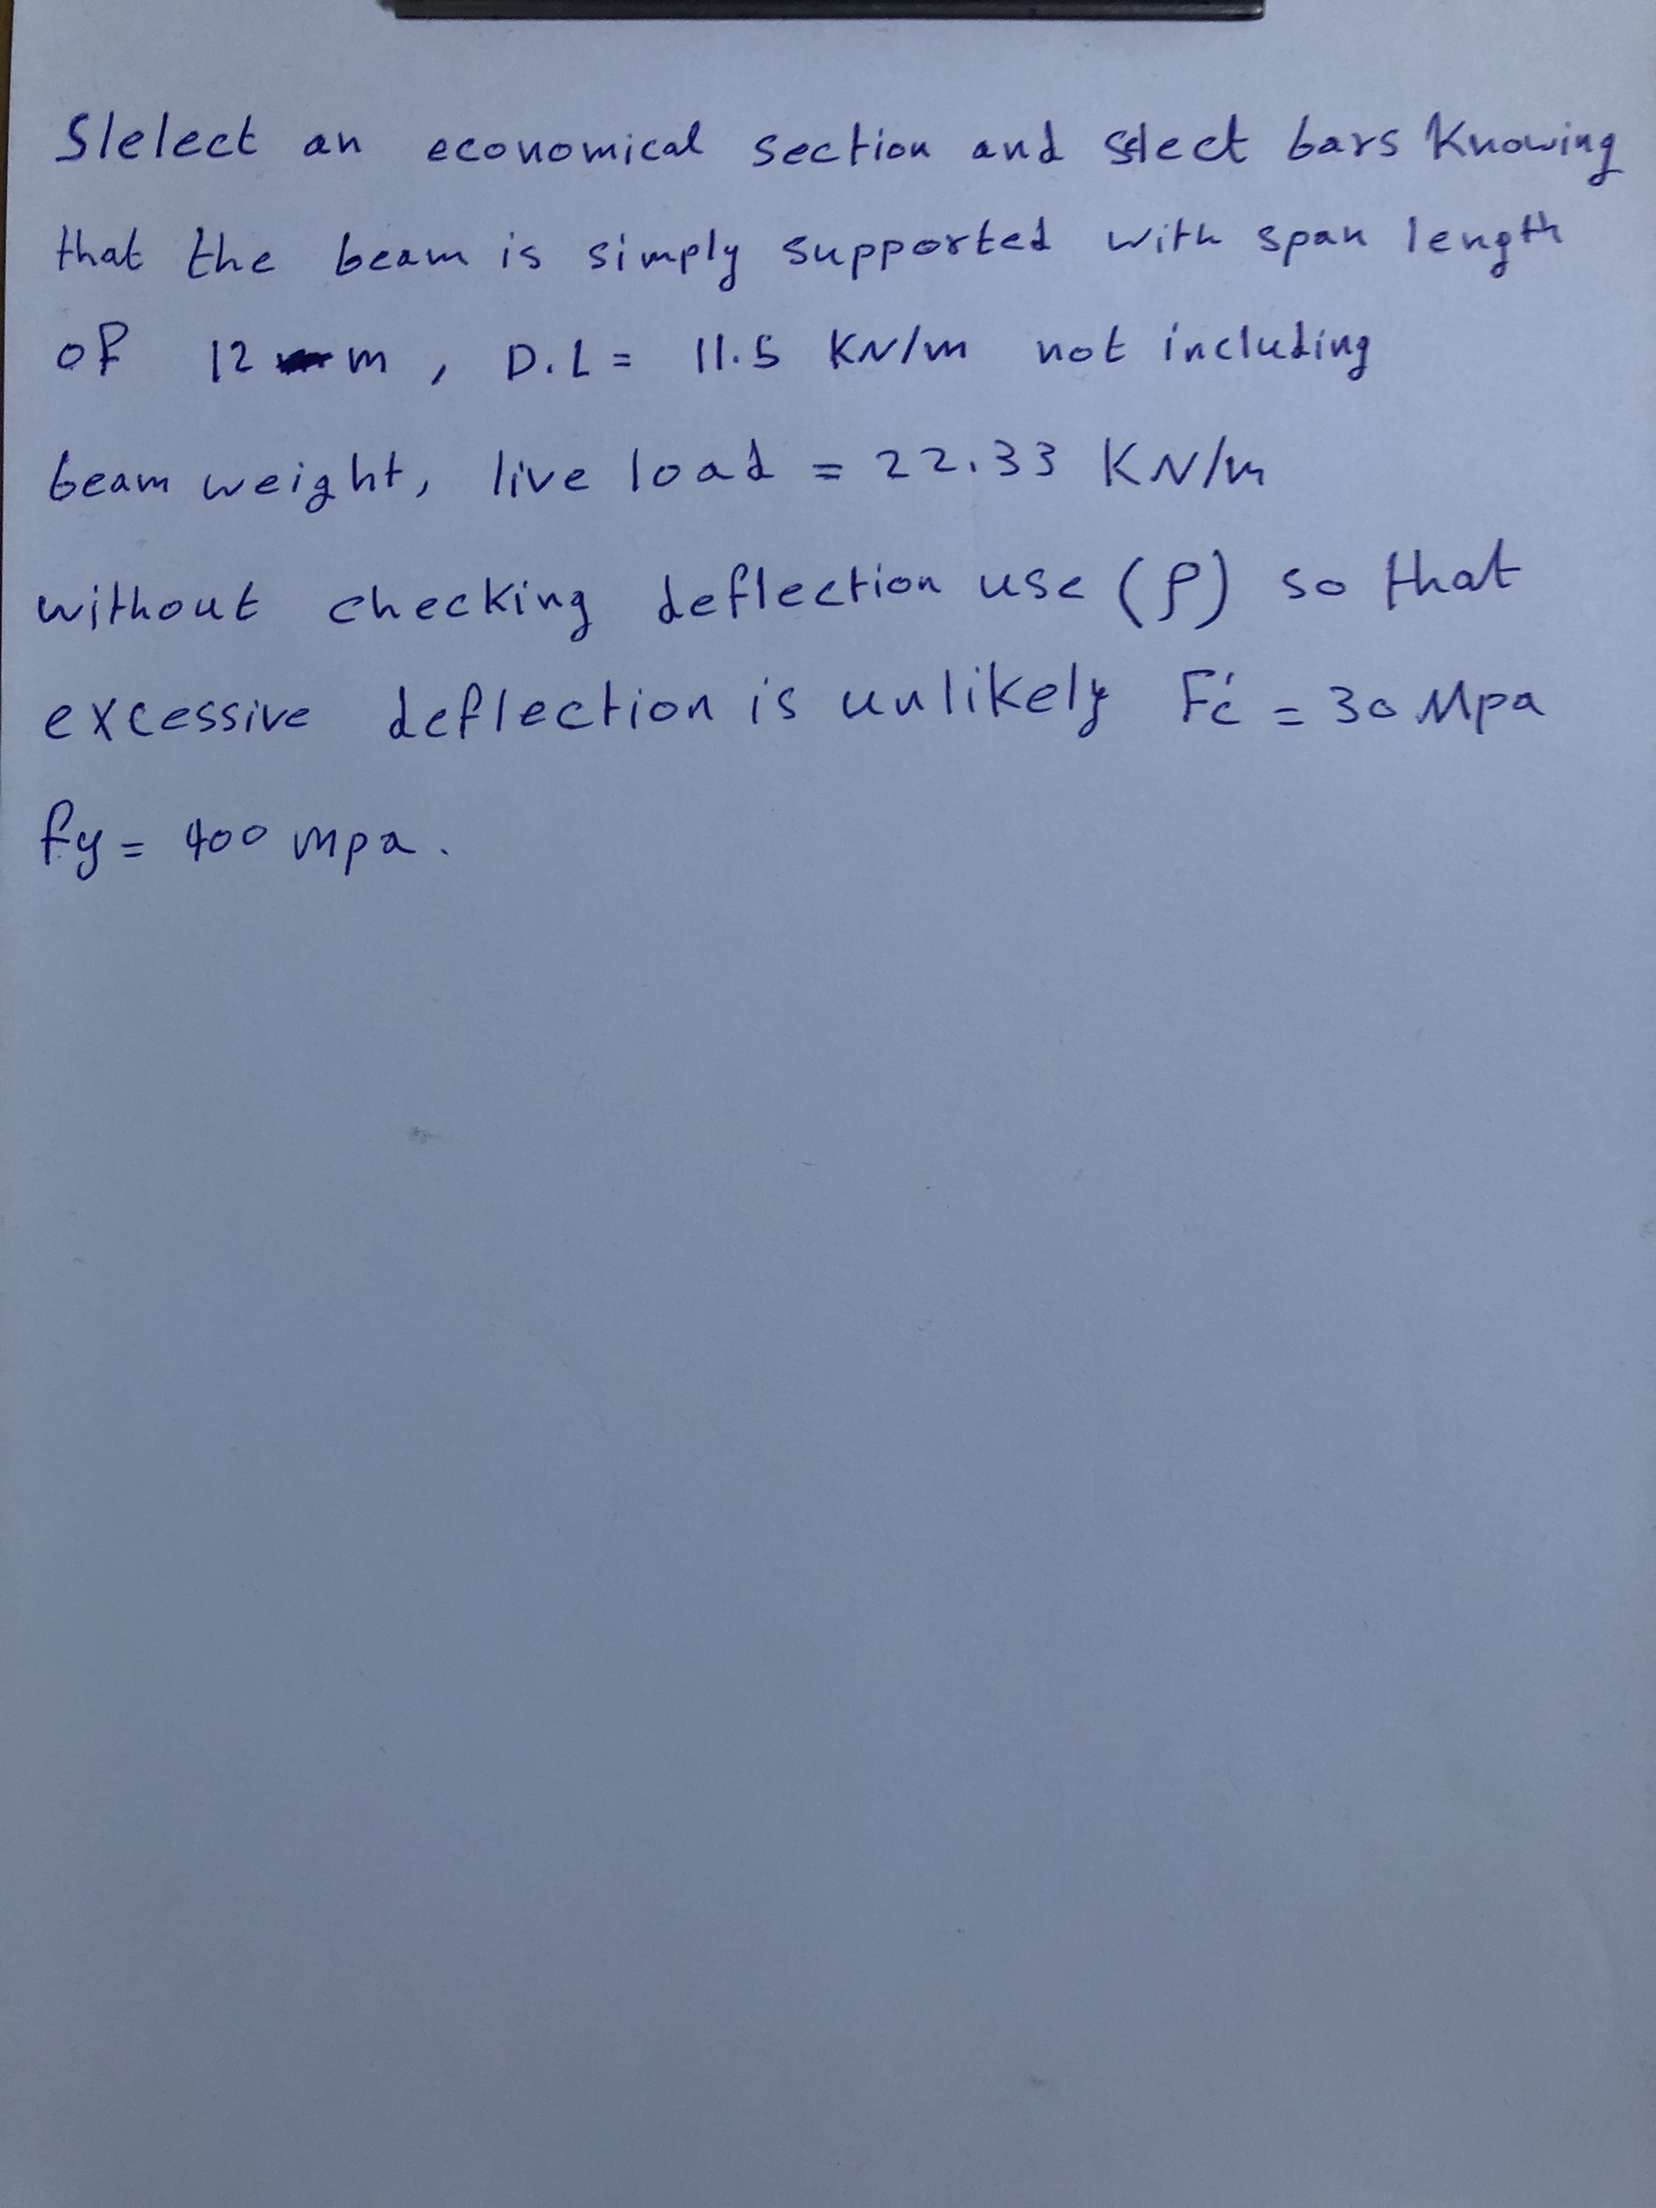 Slelect an economical section and sslect bars Knowing
that the beam is simply supported with span length
of 12 m, D.L = 11.5 KN/m not including
beam weight, live load = 22.33 KN/m
without checking deflection use (ρ) so that
excessive deflection is unlikely Fć = 30 Mpa
fy = 400 mpa.